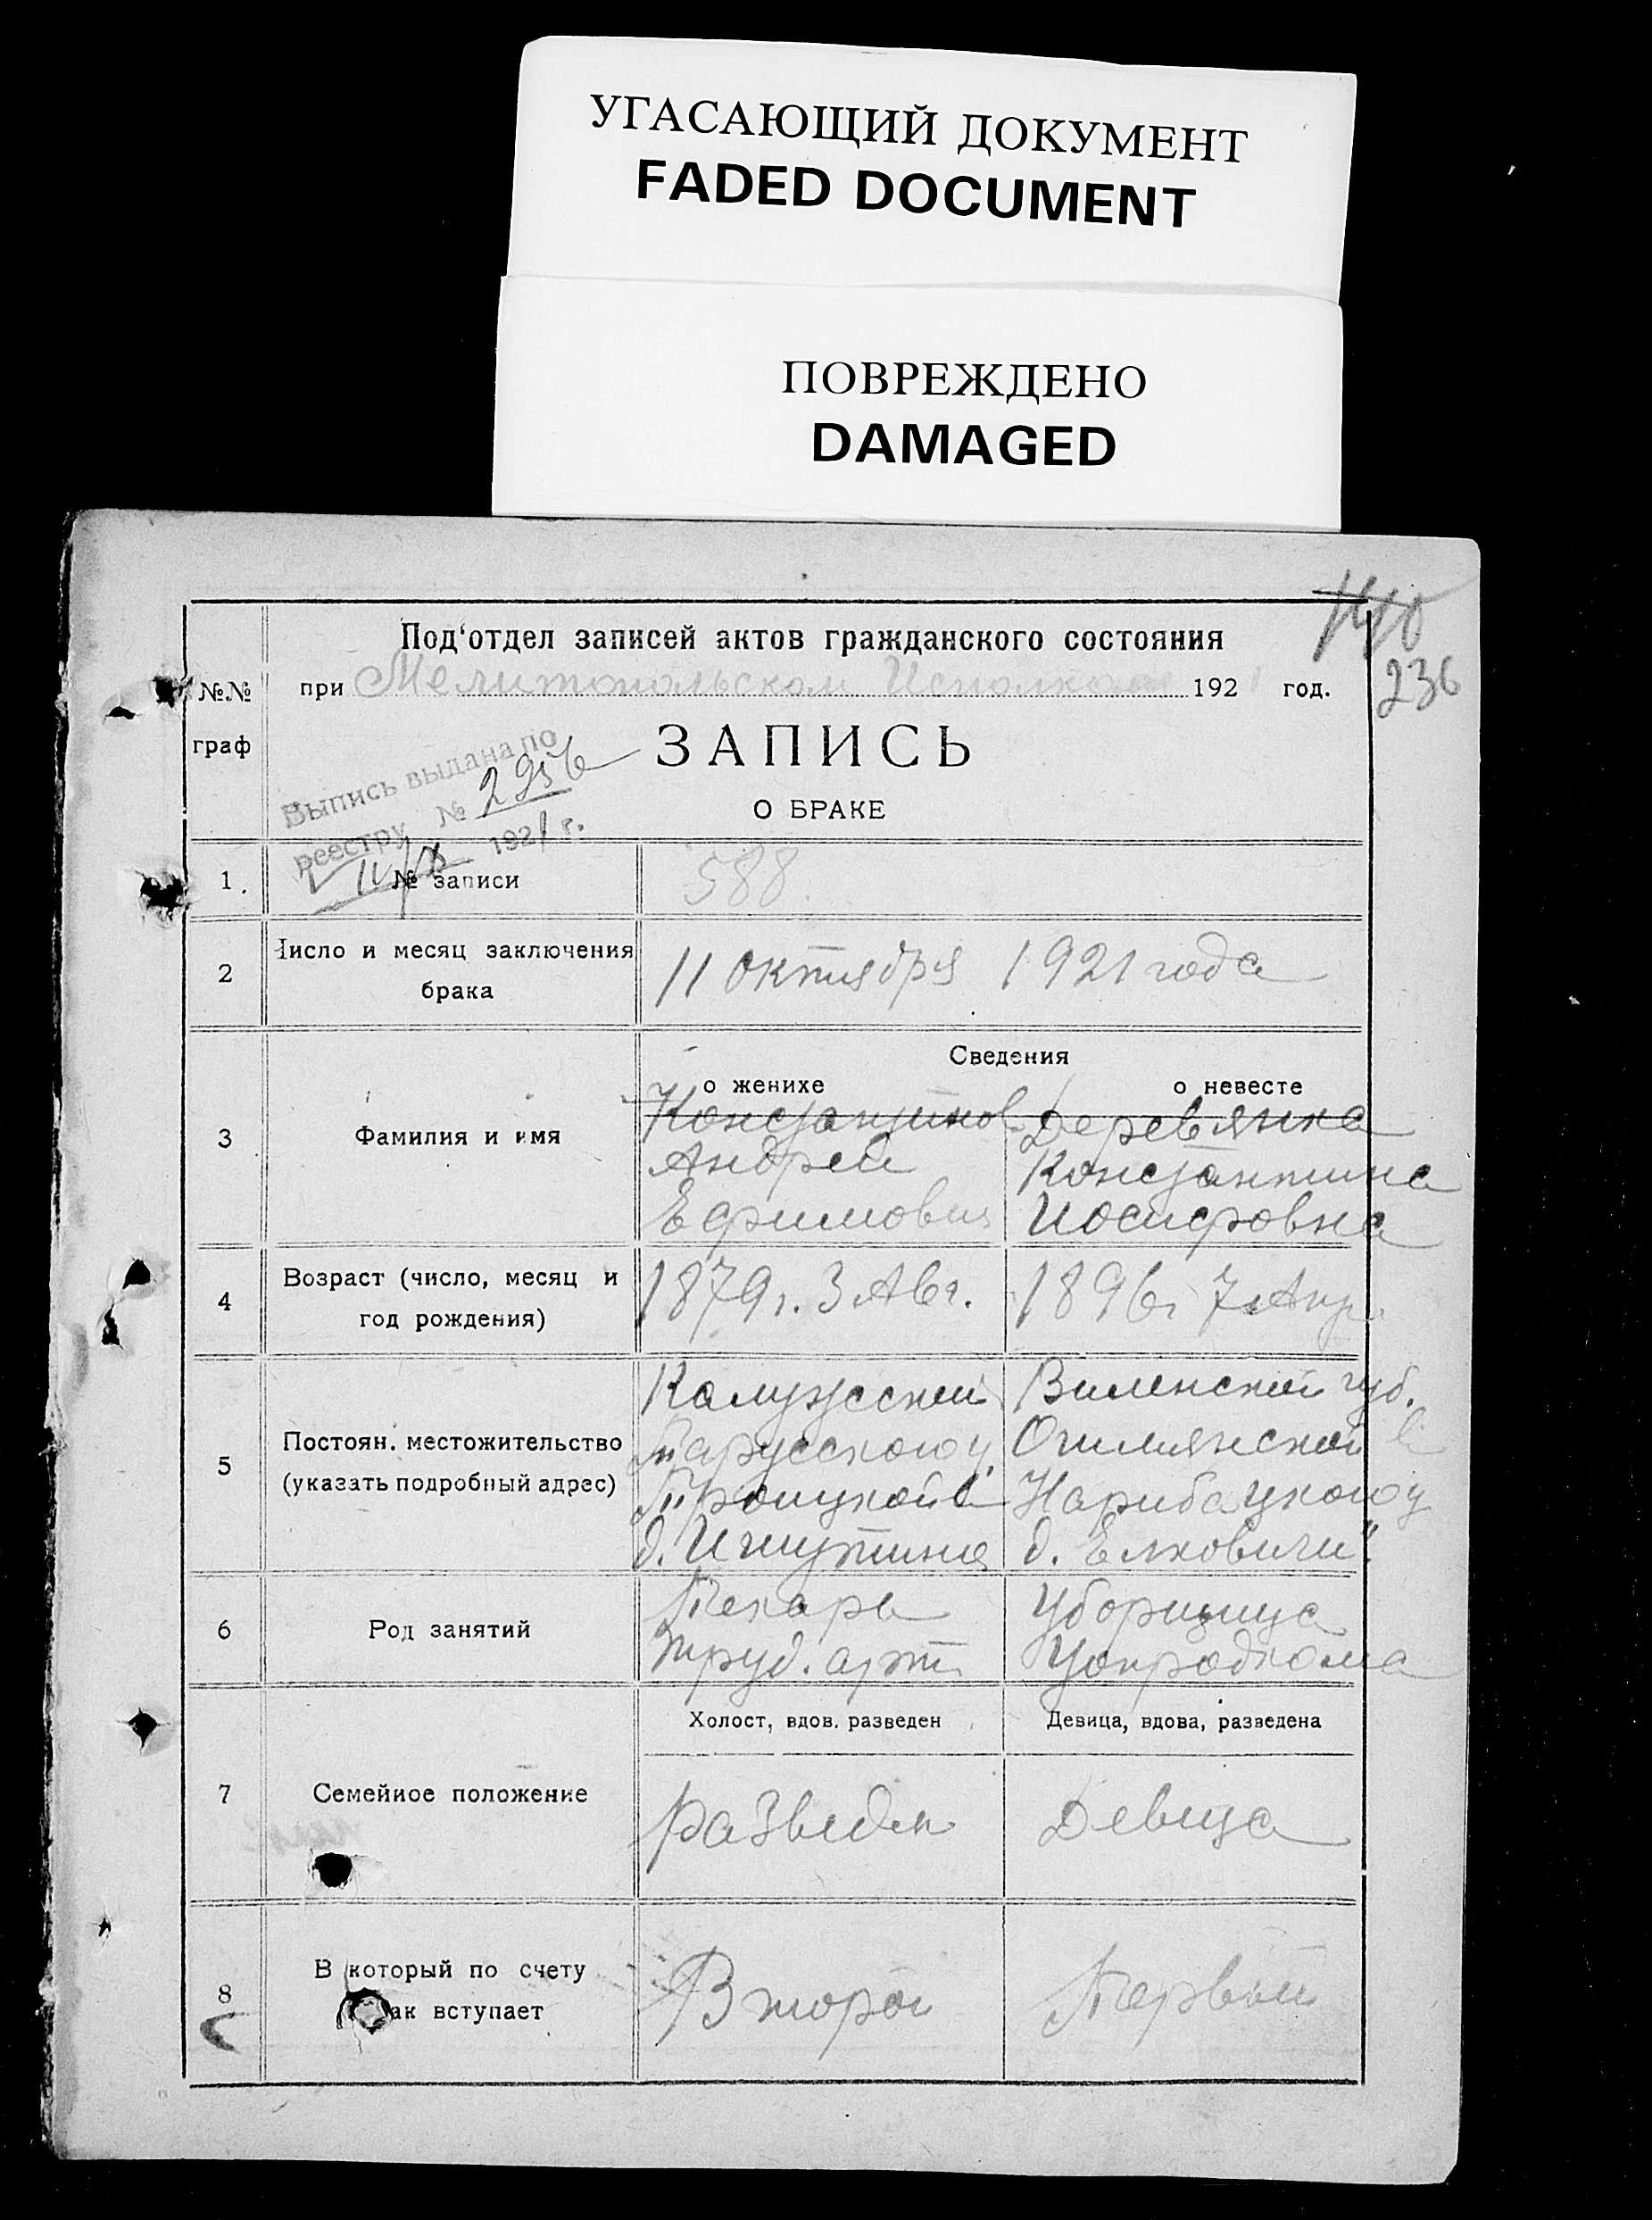 УГАСАЮЩИЙ ДОКУМЕНТ
FADED DOCUMENT
ПОВРЕЖДЕНО
DAMAGED
236
Под'отдел записей актов гражданского состояния
при Мелитопольском 192 год.
№№ граф
ЗАПИСЬ
О БРАКЕ
Выпись выдана по
реестру №
1921 г.
1. № записи 588.
2 Число и месяц заключения
брака
11 октября 1921 года
Сведения
о женихе о невесте
3 Фамилия и имя
Константинов Деревянка
Андрей Константина
Ефимович Иосифовна
4 Возраст (число, месяц и
год рождения)
1879 г. 3 Авг. 1896 г. 7 Апр.
5 Постоян. местожительство
(указать подробный адрес)
Калужской Виленской губ.
Тарусского у.
Троицкой в
д. Игнутина д.
6 Род занятий
Пекарь Уборщица
труд. арт. Упродкома
Холост, вдов, разведен Девица, вдова, разведена
7 Семейное положение
Разведен Девица
8 В который по счету
ак вступает
Второй Первый